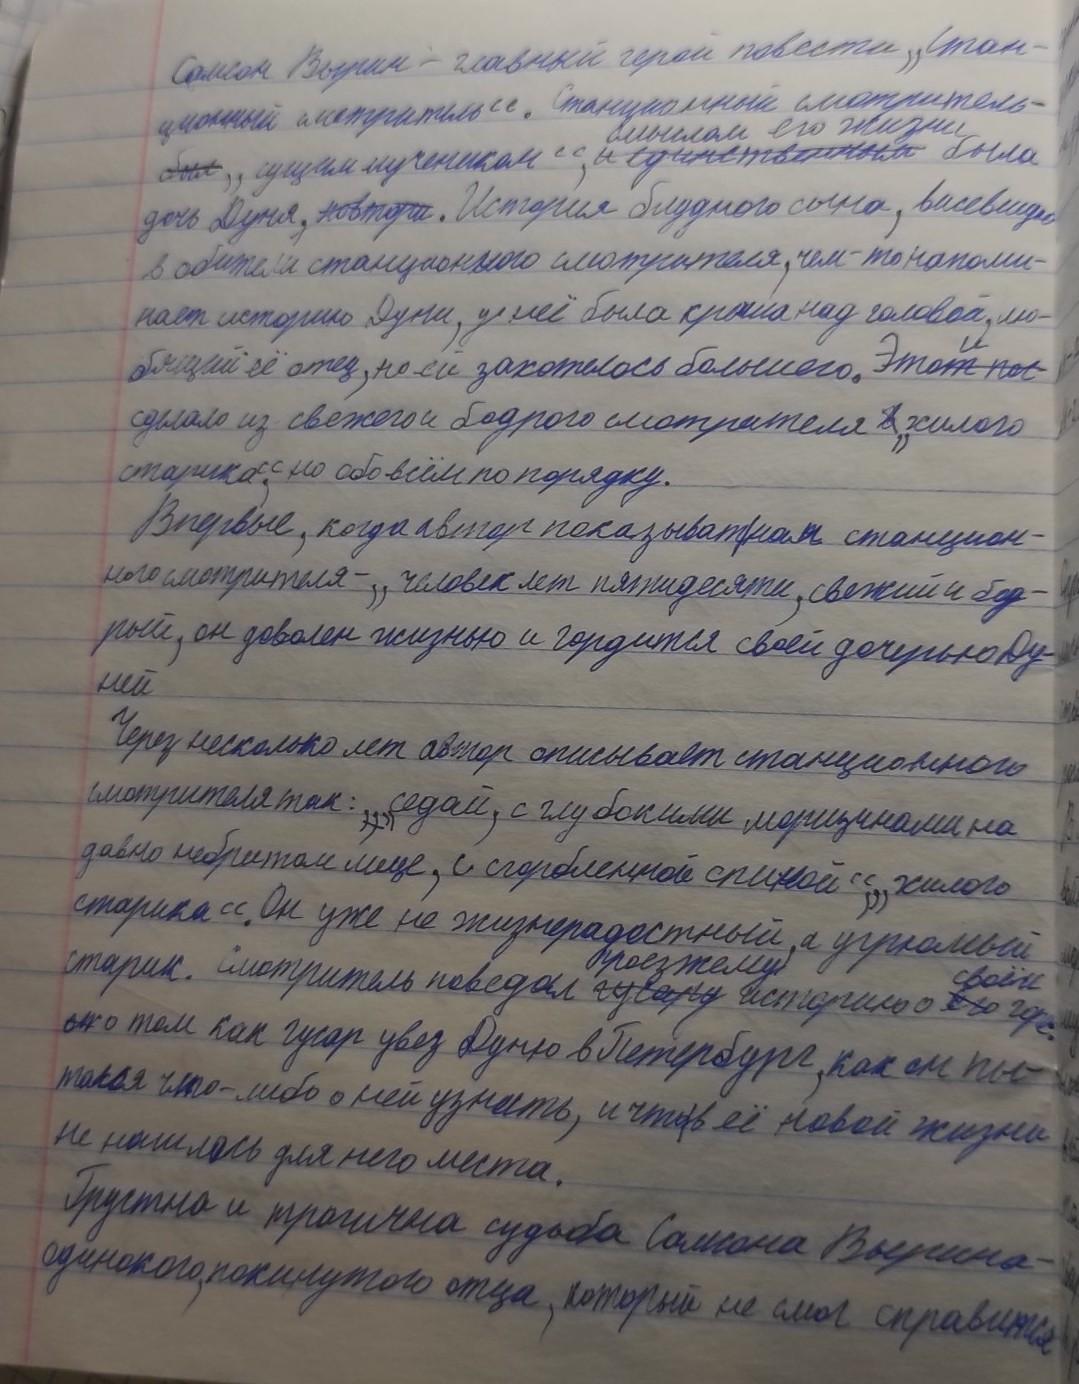 Самсон Вырин - главный герой повести „Стан-
ционный смотритель“. Станционный смотритель-
смыслом его жизни
был „сущим мучеником“, и единственным была
дочь Дуня, которая. История блудного сына, висевшая
в обители станционного смотрителя, чем-то напоми-
нает историю Дуни, у неё была крыша над головой, лю-
бящий её отец, но ей захотелось большего. Этот пос
и
сделало из свежего и бодрого смотрителя в „хилого
старика“, но обо всём по порядку.
Впервые, когда автор показывает нам станцион-
ного смотрителя - „человек лет пятидесяти, свежий и бод-
рый, он доволен жизнью и гордится своей дочерью Ду-
ней
Через несколько лет автор описывает станционного
смотрителя так: „седой, с глубокими морщинами на
давно небритом лице, с сгорбленной спиной“, „хилого
старика“. Он уже не жизнерадостный, а угрюмый
проезжему своём
старик. Смотритель поведал гусару историю о его горе.
о том как гусар увез Дуню в Петербург, как он пы-
тался что-либо о ней узнать, и что в её новой жизни
не нашлось для него места.
Грустна и трагична судьба Самсона Вырина-
одинокого, покинутого отца, который не смог справится